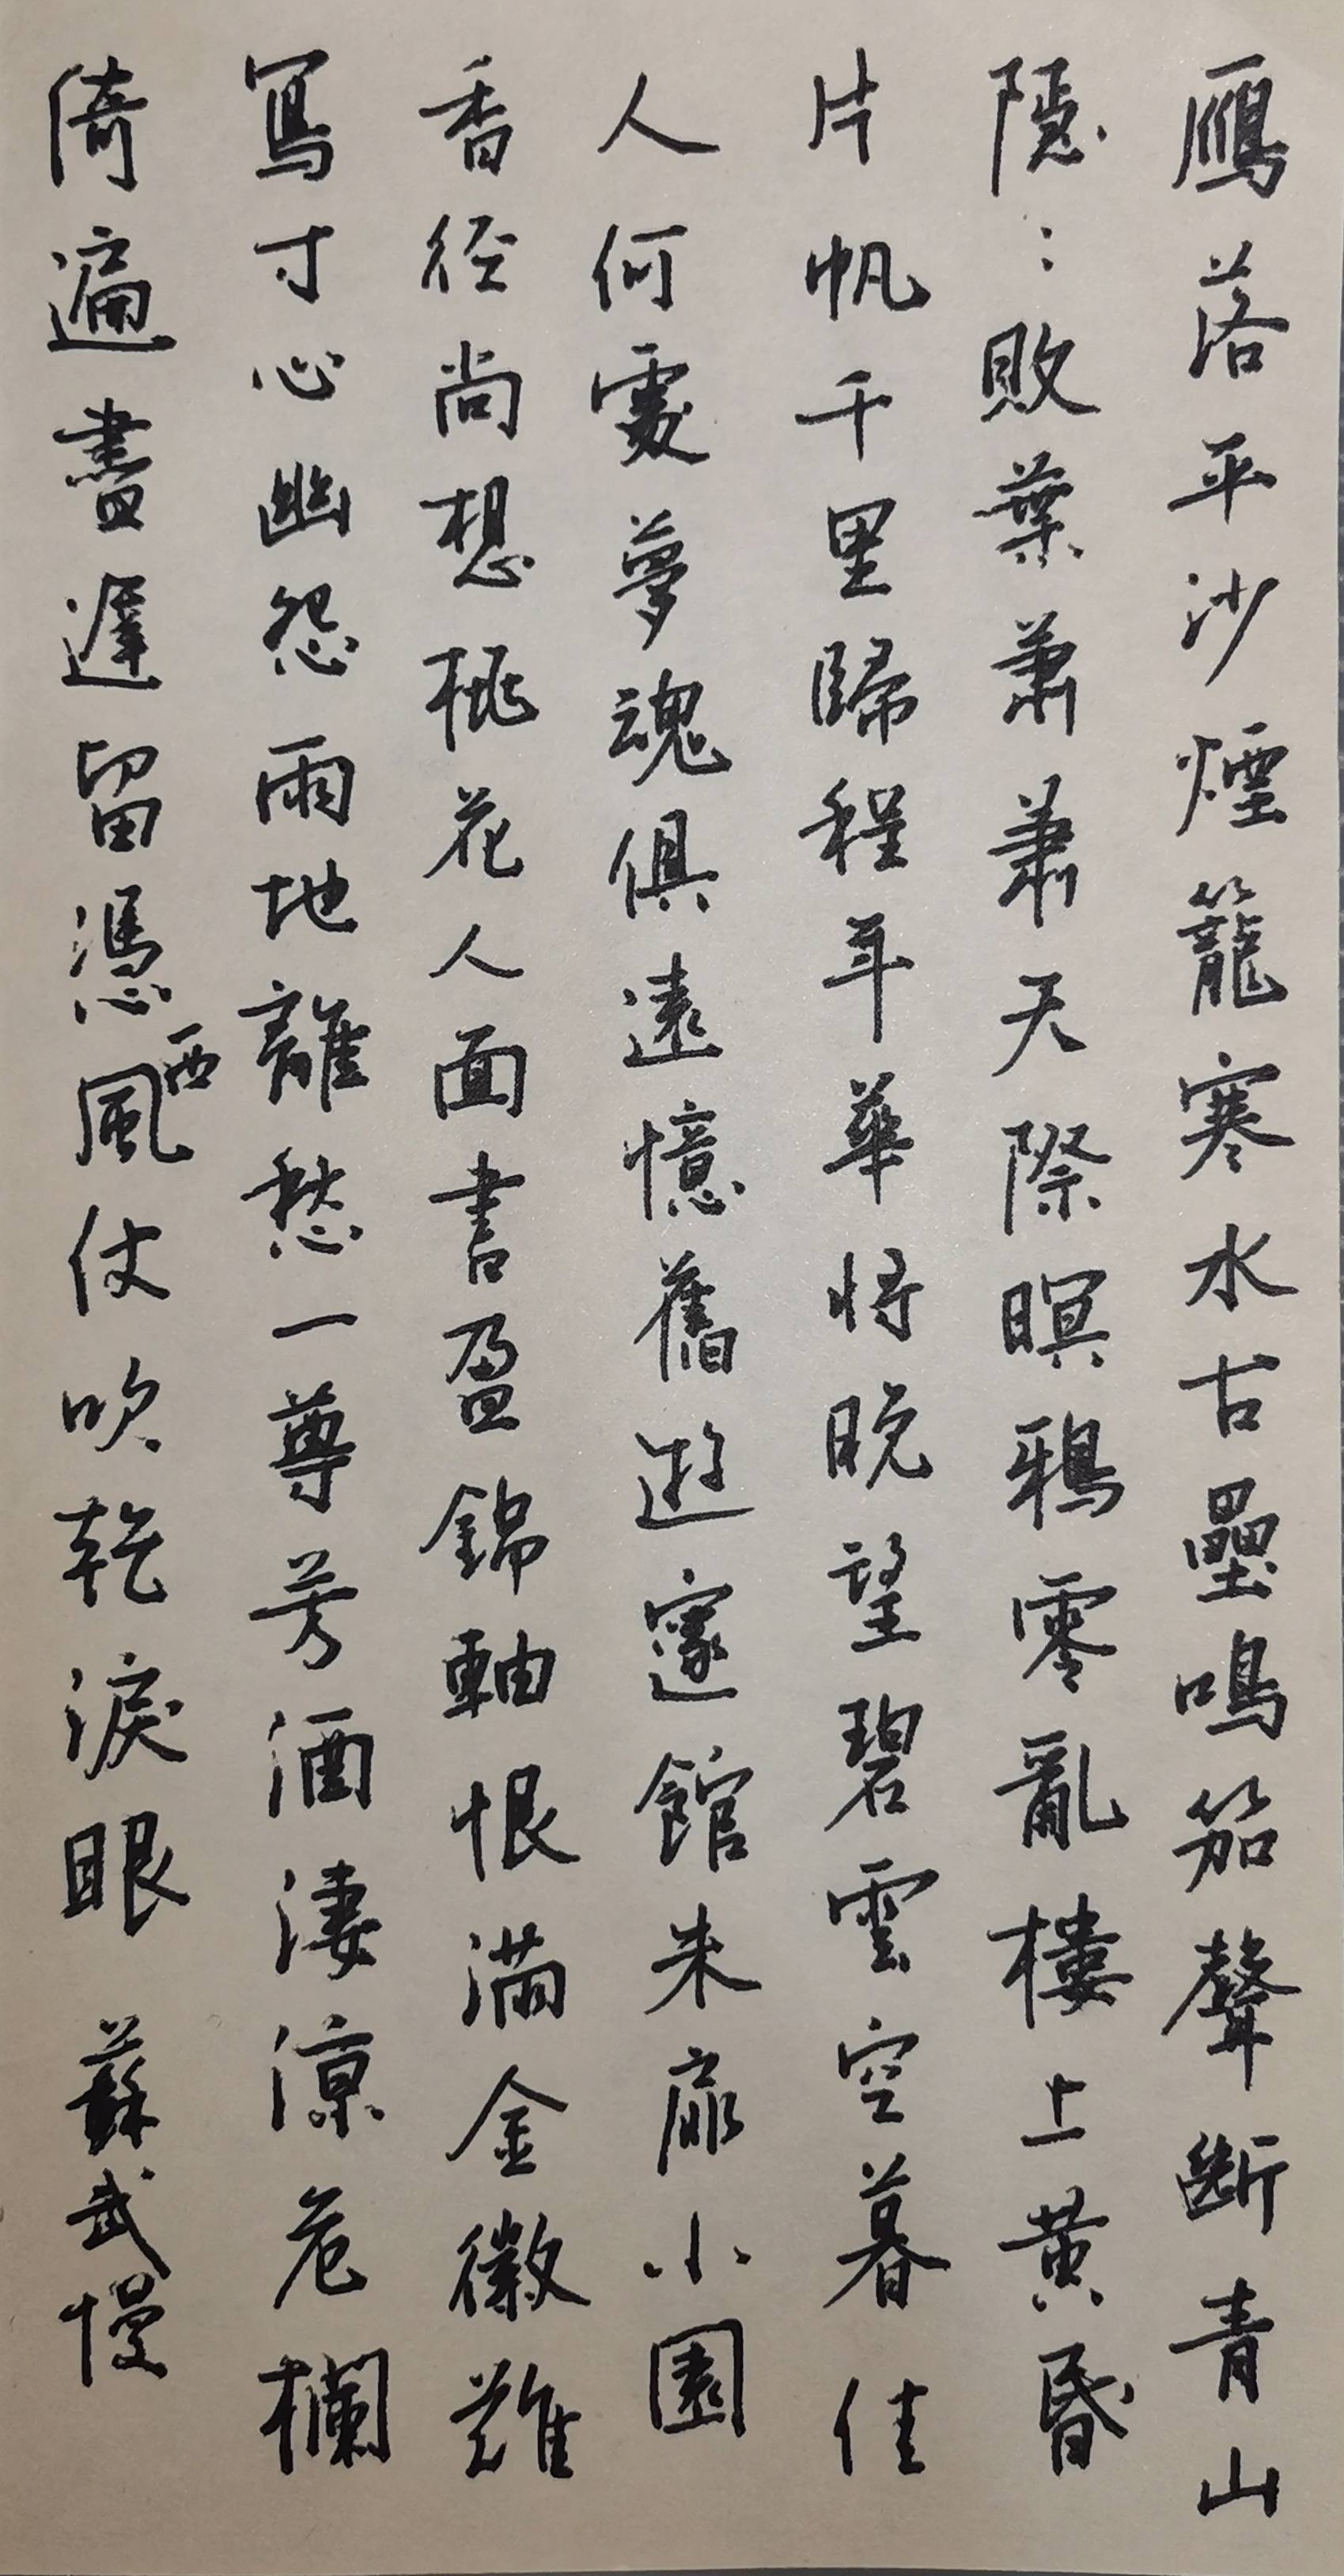 鴈落平沙煙籠寒水古壘鳴笳聲斷青山
隱:敗葉蕭蕭天際暝鴉零亂樓上黃昏
片帆千里歸程年華將晚望碧雲空暮佳
人何處夢魂俱遠憶舊遊邃館朱扉小園
香徑尚想桃花人面書盈錦軸恨滿金徽難
寫寸心幽怨兩地離愁一尊芳酒淒涼危欄
倚遍盡遲留憑西風仗吹乾淚眼 蘇武慢